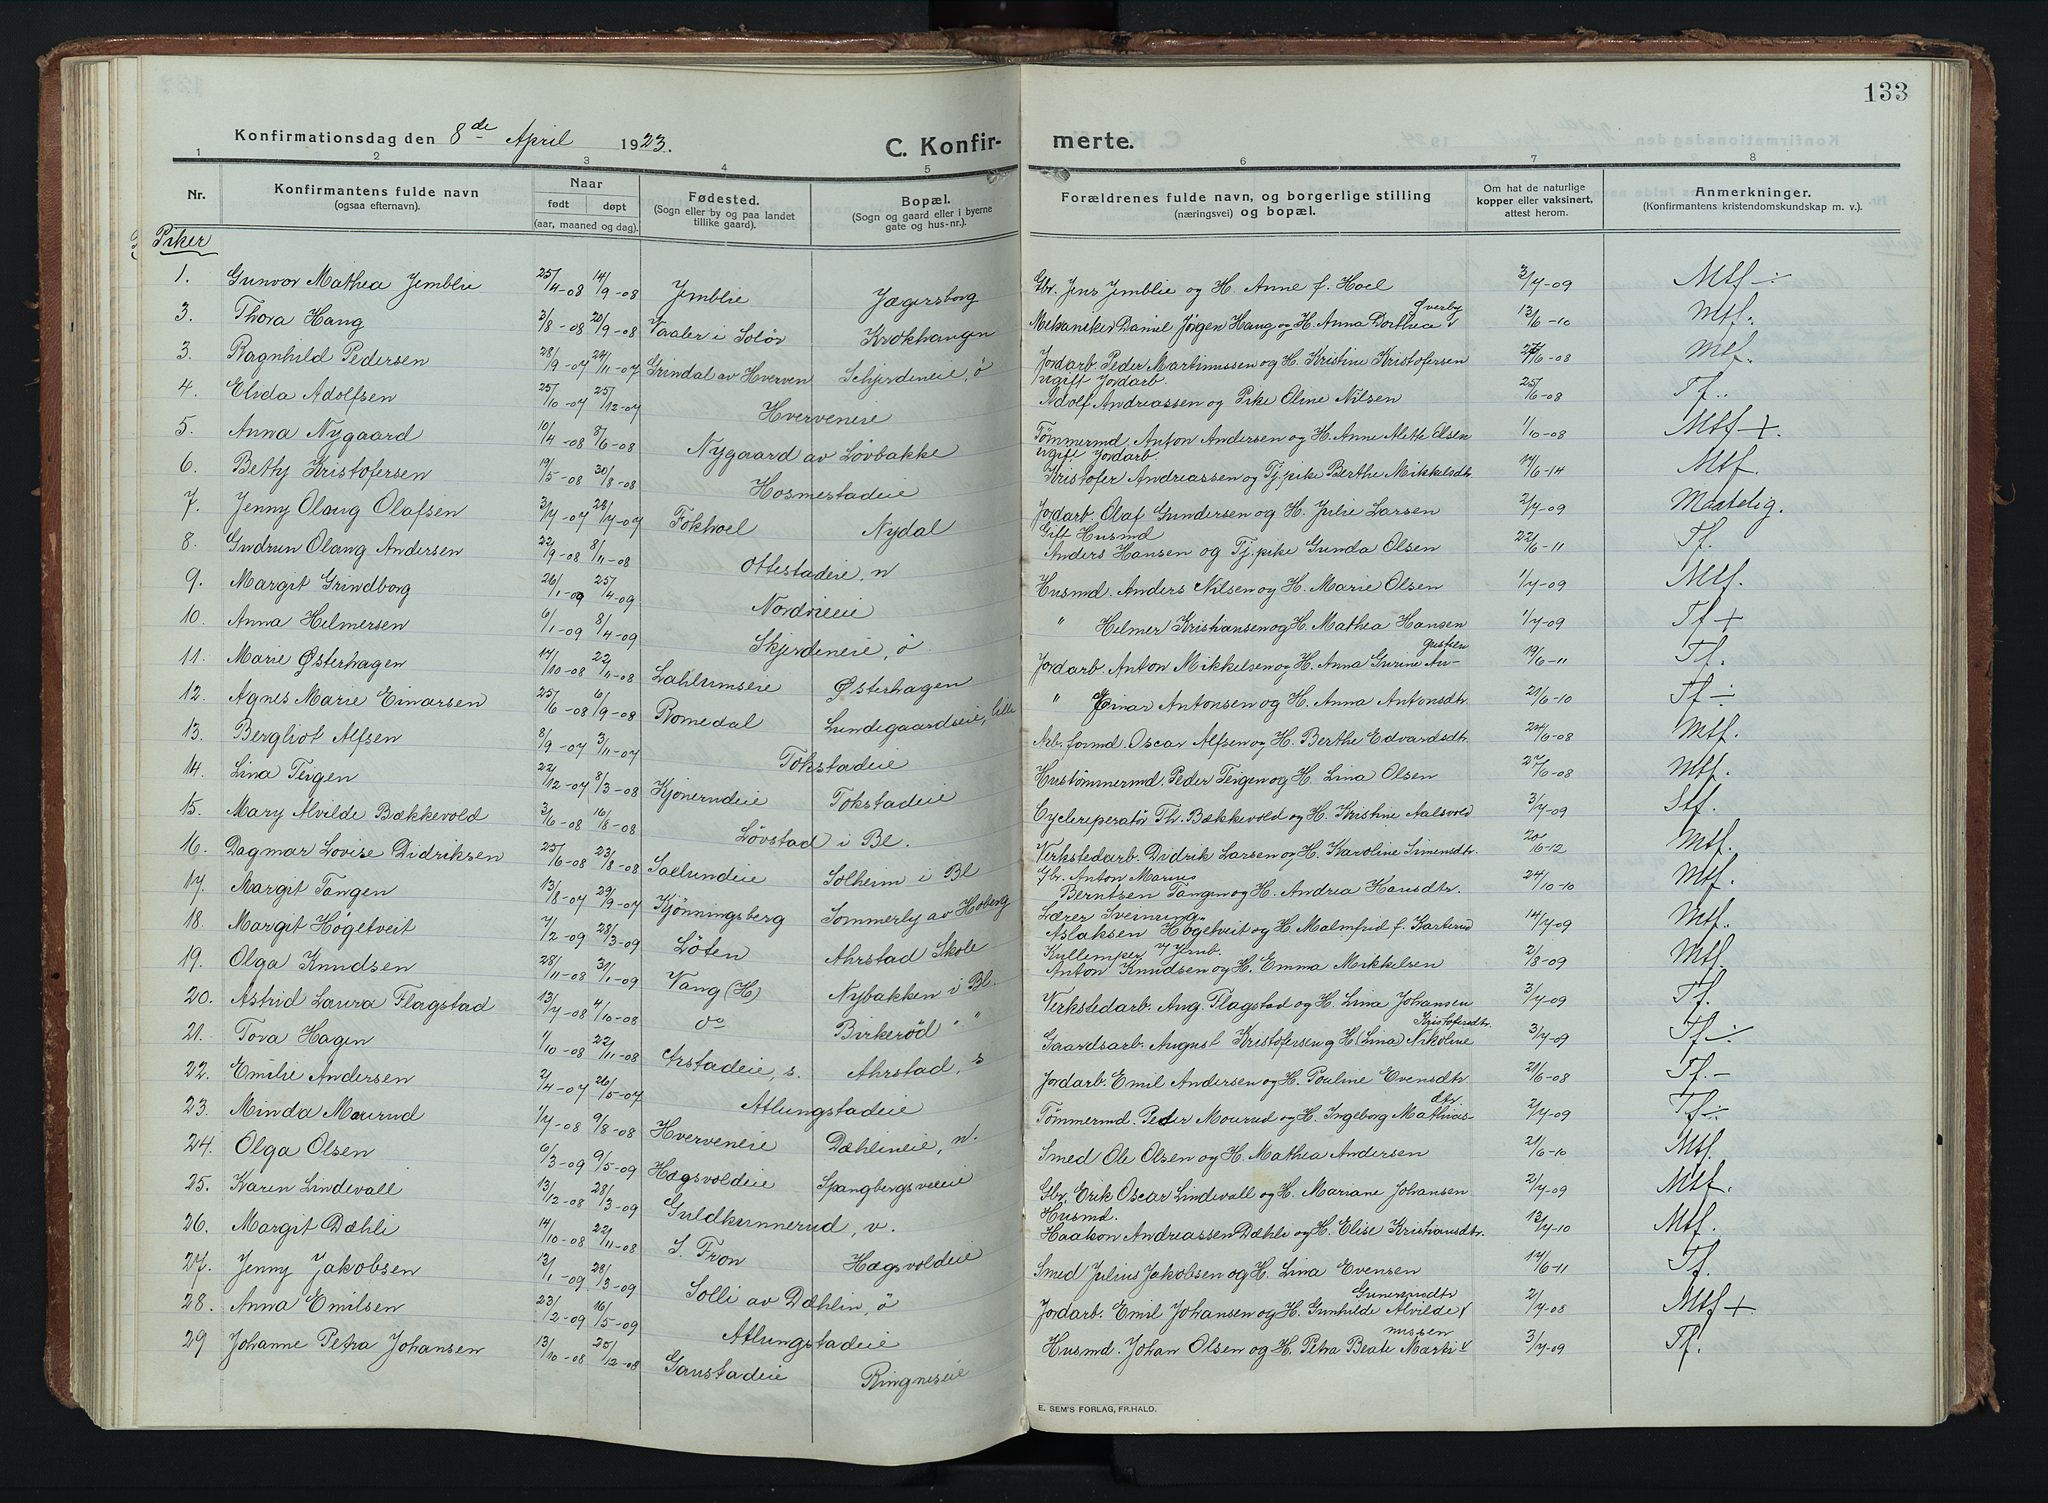 133
Konfirmationsdag den 8de April 1923.
C. Konfir- merte.
1 2 3 4 5 6 7 8
Nr.
Konfirmantens fulde navn (ogsaa efternavn).
Naar
født døpt
(aar, maaned og dag).
Fødested. (Sogn eller by og paa landet tillike gaard).
Bopæl. (Sogn og gaard eller i byerne gate og hus-nr.).
Forældrenes fulde navn, og borgerlige stilling (næringsvei) og bopæl.
Om hat de naturlige kopper eller vaksinert, attest herom.
Anmerkninger. (Konfirmantens kristendomskundskap m. v.).
Piker
1. Gunvor Mathea Jemblie 25/4-08 14/9-08 Jemblie Jægersborg Gbr. Jens Jemblie og H. Anne f. Hoel 3/7-09 Mtf ÷
3. Thora Haug 3/8-08 20/9-08 Vaaler i Solør Krokhaugen Mekaniker Daniel Jørgen Haug og H. Anna Dorthea Øverby 12/6-10 Mtf.
3. Ragnhild Pedersen 28/9-07 24/11-07 Grindal av Hverven Schjerdeneie, ø Jordarb. Peder Martinussen og H. Kristine Kristofersen 25/6-08 Mtf.
4. Elida Adolfsen 25/10-07 25/12-07 Hverveneie Ugift Jordarb. Adolf Andreassen og Pike Oline Nilsen 25/6-08 Tf.
5. Anna Nygaard 10/4-08 8/6-08 Nygaard av Løvbakke Tømmermd. Anton Andersen og H. Anne Alette Olsen 1/10-08 Mtf +.
6. Betty Kristofersen 19/5-08 30/8-08 Hosmestadeie Ugift Jordarb. Kristofer Andreassen og Tj.pike Berthe Mikkelsdtr. 17/6-14 Mtf.
7. Jenny Olaug Olafsen 3/7-07 28/7-07 Fokhoel Nydal Jordarb. Olaf Gundersen og H. Julie Larsen 2/7-09 Maatelig.
8. Gudrun Olaug Andersen 22/9-08 8/11-08 Ottestadeie, n Gift Husmd Anders Hansen og Tj.pike Gunda Olsen 22/6-11 Tf.
9. Margit Grindborg 26/1-09 25/4-09 Nordvieie Husmd. Anders Nilsen og H. Marie Olsen 1/7-09 Mtf.
10. Anna Helmersen 6/1-09 8/4-09 Skjerdeneie, ø " Helmer Kristiansen og H. Mathea Hansen 1/7-09 Tf +
11. Marie Østerhagen 17/10-08 22/11-08 Lahlumseie Østerhagen Jordarb. Anton Mikkelsen og H. Anna Gurine Au-gustsen 19/6-11 Tf.
12. Agnes Marie Einarsen 25/6-08 6/9-08 Romedal Lundegaardseie, lille " Einar Antonsen og H. Anna Antonsdtr. 21/6-10 Tf ÷
13. Bergliot Alfsen 8/9-07 3/11-07 Tokstadeie Arb.formd. Oscar Alfsen og H. Berthe Edvardsdtr. 25/6-08 Mtf.
14. Lina Teigen 22/12-07 8/3-08 Kjonerudeie Tokstadeie Hustømmermd. Peder Teigen og H. Lina Olsen 27/6-08 Mtf.
15. Mary Alvilde Bækkevold 3/6-08 16/8-08 Løvstad i Bl. Cyclereperatør Th. Bækkevold og H. Kristine Aalsvold 3/7-09 Stf.
16. Dagmar Lovise Didriksen 25/6-08 23/8-08 Saelundeie Solheim i Bl Verkstedarb. Didrik Larsen og H. Karoline Simensdtr. 20/6-12 Mtf.
17. Margit Tangen 13/8-07 29/9-07 Kjønningsberg Sommerby av Hoberg Gbr. Anton Marius Berntsen Tangen og H. Andrea Hansdtr. 24/10-10 Mtf.
18. Margit Høgetveit 7/2-09 28/3-09 Løten Ahrstad Skole Lærer Sveinung Aslaksen Høgetveit og H. Malmfrid f. Karterud 14/7-09 Mtf.
19. Olga Knudsen 28/11-08 31/1-09 Vang (H) Nybakken i Bl. Kullemper v/ Jernb. Anton Knudsen og H. Emma Mikkelsen 2/8-09 Mtf
20. Astrid Laura Flagstad 13/7-08 4/10-08 do Birkerød " " Verkstedarb. Aug. Flagstad og H. Lina Johansen 3/7-09 Tf.
21. Tova Hagen 1/10-08 22/11-08 Arstadeie, s. Ahrstad, s Gaardsarb. August Kristofersen og H (Lina) Nikoline Kristofersdtr. 3/7-09 Tf ÷
22. Emilie Andersen 2/4-07 26/5-07 Atlungstadeie Jordarb. Emil Andersen og H. Pouline Evensdtr. 21/6-08 Tf.-
23. Minda Mourud 1/7-08 9/8-08 Hverveneie Dæhlineie, n. Tømmermd. Peder Mourud og H. Ingeborg Mathias-dtr 2/7-09 Tf ÷
24. Olga Olsen 6/3-09 9/5-09 Hægsvoldeie Spangbergsveieie Smed Ole Olsen og H. Mathea Andersen 21/6-10 Mtf.
25. Karen Lindevall 13/12-08 28/3-09 Guldkunnerud, v. Gbr. Erik Oscar Lindevall og H. Mariane Johansen 2/7-09 Mtf.
26. Margit Dæhli 14/10-08 22/11-08 S. Fron Hægsvoldeie Husmd. Haakon Andreassen Dæhli og H. Elise Kristiansdtr. 13/7-10 Mtf.
27. Jenny Jakobsen 12/1-09 28/3-09 Solli av Dæhlin, ø Smed Julius Jakobsen og H. Lina Evensen 17/6-11 Tf.
28. Anna Emilsen 23/2-09 16/5-09 Atlungstadeie Jordarb. Emil Johansen og H. Gunhilde Alvilde 2/7-08 Mtf +
29 Johanne Petra Johansen 13/10-08 25/12-08 Gaustadeie Ringneseie Husmd. Johan Olsen og H. Petra Beate Marti-nussen 3/7-09 Tf.
E. SEM'S FORLAG, FR.HALD.